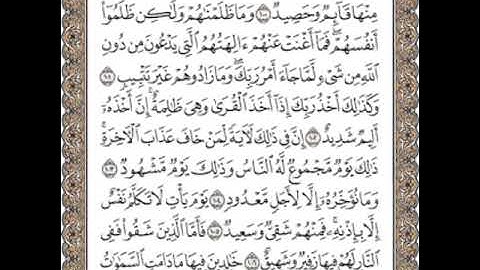 مِنْهَا قَآئِمٌ وَحَصِيدٌ ۝١٠٠ وَمَا ظَلَمْنَٰهُمْ وَلَٰكِن ظَلَمُوٓا۟
أَنفُسَهُمْ ۖ فَمَآ أَغْنَتْ عَنْهُمْ ءَالِهَتُهُمُ ٱلَّتِى يَدْعُونَ مِن دُونِ
ٱللَّهِ مِن شَىْءٍ لَّمَّا جَآءَ أَمْرُ رَبِّكَ ۖ وَمَا زَادُوهُمْ غَيْرَ تَتْبِيبٍ ۝١٠١
وَكَذَٰلِكَ أَخْذُ رَبِّكَ إِذَآ أَخَذَ ٱلْقُرَىٰ وَهِىَ ظَٰلِمَةٌ ۚ إِنَّ أَخْذَهُۥٓ
أَلِيمٌ شَدِيدٌ ۝١٠٢ إِنَّ فِى ذَٰلِكَ لَءَايَةً لِّمَنْ خَافَ عَذَابَ ٱلْءَاخِرَةِ ۚ
ذَٰلِكَ يَوْمٌ مَّجْمُوعٌ لَّهُ ٱلنَّاسُ وَذَٰلِكَ يَوْمٌ مَّشْهُودٌ ۝١٠٣
وَمَا نُؤَخِّرُهُۥٓ إِلَّا لِأَجَلٍ مَّعْدُودٍ ۝١٠٤ يَوْمَ يَأْتِ لَا تَكَلَّمُ نَفْسٌ
إِلَّا بِإِذْنِهِۦ ۚ فَمِنْهُمْ شَقِىٌّ وَسَعِيدٌ ۝١٠٥ فَأَمَّا ٱلَّذِينَ شَقُوا۟ فَفِى
ٱلنَّارِ لَهُمْ فِيهَا زَفِيرٌ وَشَهِيقٌ ۝١٠٦ خَٰلِدِينَ فِيهَا مَا دَامَتِ ٱلسَّمَٰوَٰتُ